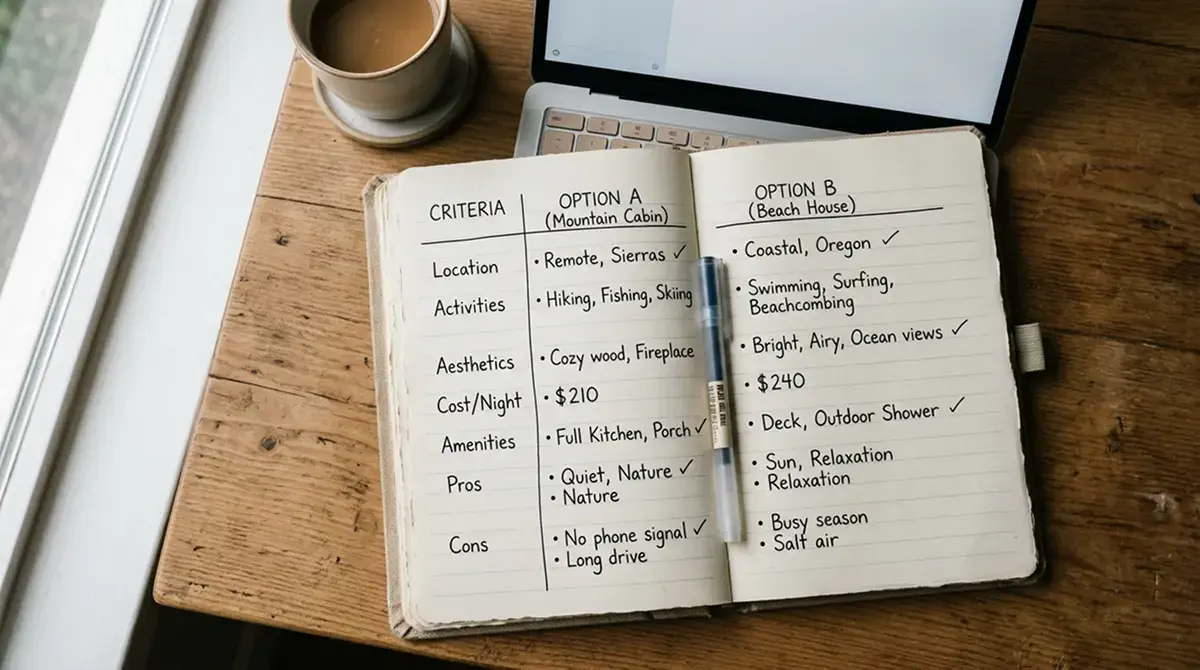 CRITERIA
OPTION A
(Mountain Cabin)
OPTION B
(Beach House)
Location
• Remote, Sierras ✓
• Coastal, Oregon ✓
Activities
• Hiking, Fishing, Skiing
• Swimming, Surfing,
Beachcombing
Aesthetics
• Cozy wood, Fireplace
• Bright, Airy, Ocean views ✓
Cost/Night
• $210
• $240
Amenities
• Full Kitchen, Porch ✓
• Deck, Outdoor Shower ✓
Pros
• Quiet, Nature ✓
• Nature
• Sun, Relaxation
• Relaxation
Cons
• No phone signal ✓
• Long drive
• Busy season
• Salt air